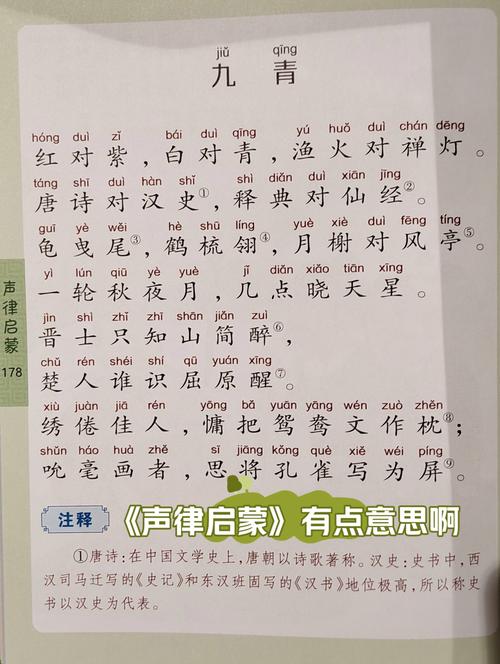 jiǔ qīng
九 青
hóng duì zǐ bái duì qīng yú huǒ duì chán dēng
红对紫，白对青，渔火对禅灯。
táng shī duì hàn shǐ shì diǎn duì xiān jīng
唐诗对汉史①，释典对仙经②。
guī yè wěi hè shū líng yuè xiè duì fēng tíng
龟曳尾③，鹤梳翎④，月榭对风亭⑤。
yì lún qiū yè yuè jǐ diǎn xiǎo tiān xīng
一轮秋夜月，几点晓天星。
jìn shì zhǐ zhī shān jiǎn zuì
晋士只知山简醉⑥，
chǔ rén shéi shí qū yuán xǐng
楚人谁识屈原醒⑦。
xiù juàn jiā rén yōng bǎ yuān yāng wén zuò zhěn
绣倦佳人，慵把鸳鸯文作枕⑧；
shǔn háo huà zhě sī jiāng kǒng què xiě wéi píng
吮毫画者，思将孔雀写为屏⑨。
注释
《声律启蒙》有点意思啊
①唐诗：在中国文学史上，唐朝以诗歌著称。汉史：史书中，西
汉司马迁写的《史记》和东汉班固写的《汉书》地位极高，所以称史
书以汉史为代表。
声律启蒙
178